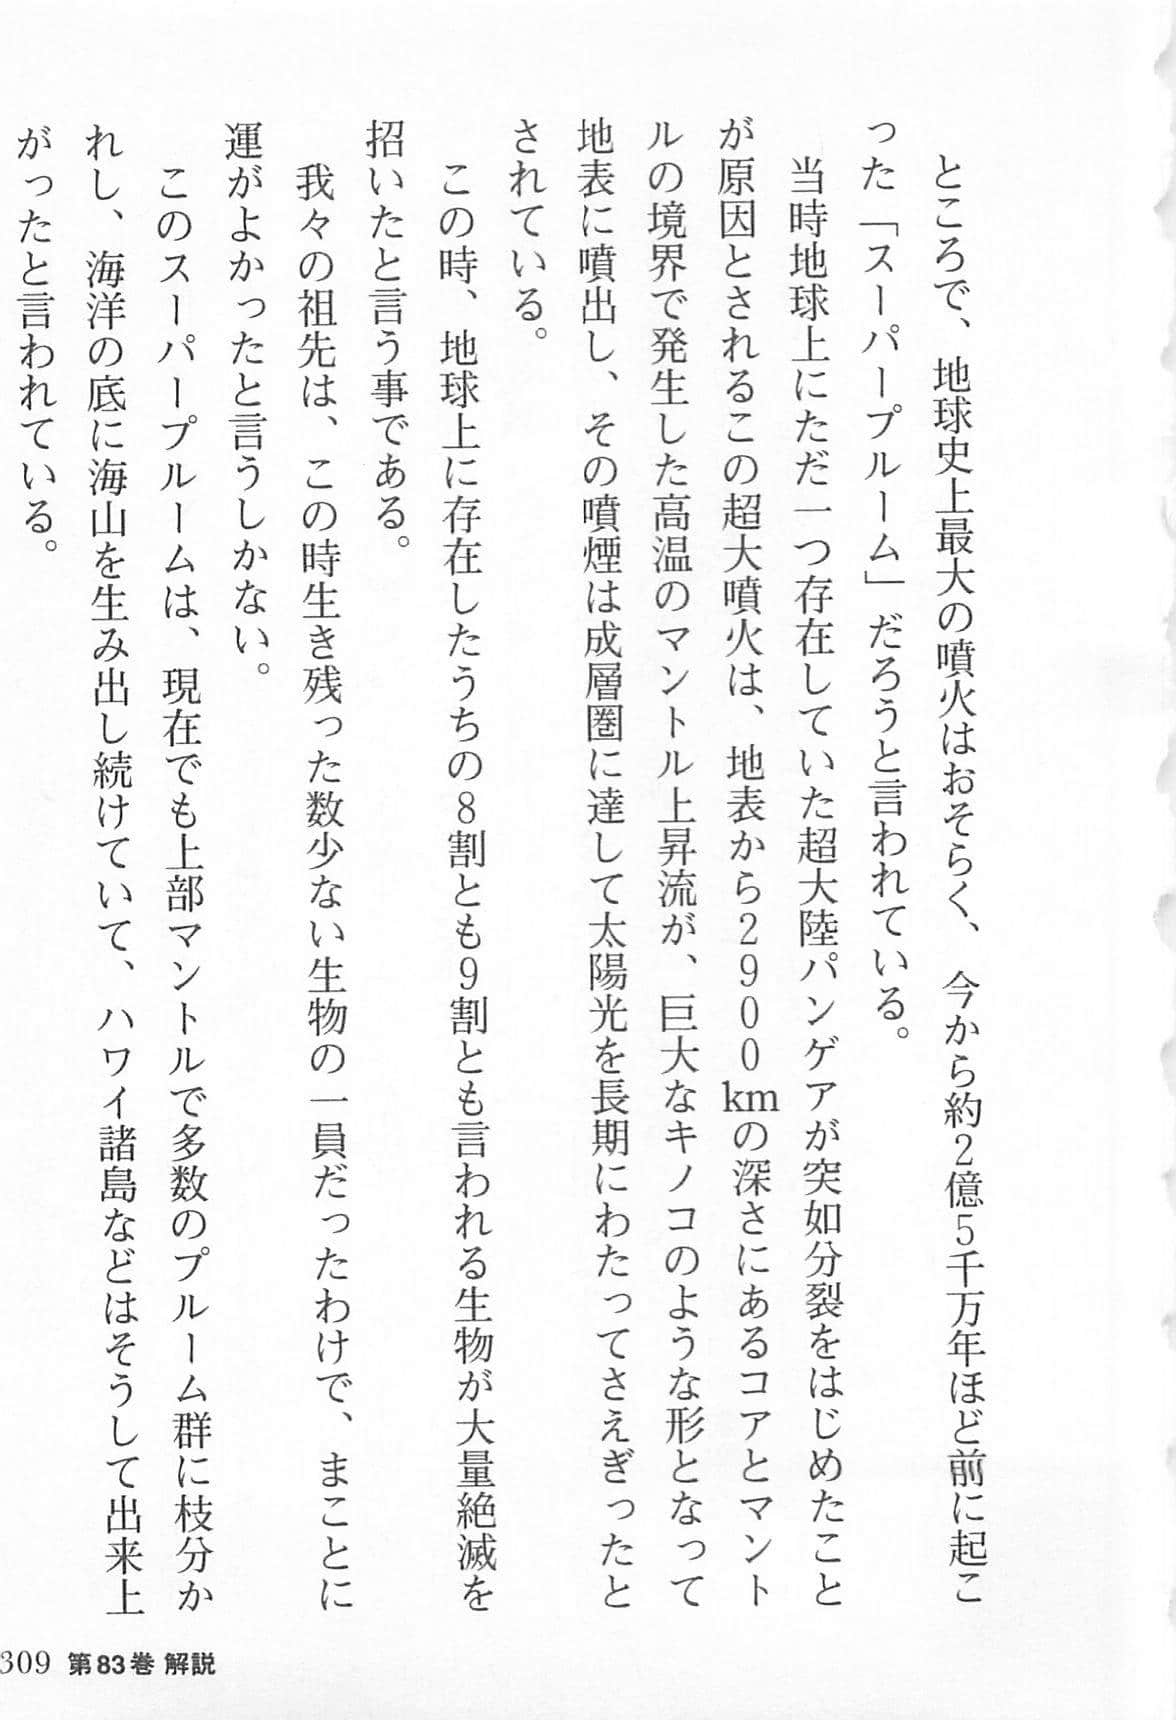 ところで、地球史上最大の噴火はおそらく、今から約2億5千万年ほど前に起こ
った「スーパープルーム」だろうと言われている。
当時地球上にただ一つ存在していた超大陸パンゲアが突如分裂をはじめたこと
が原因とされるこの超大噴火は、地表から2900kmの深さにあるコアとマント
ルの境界で発生した高温のマントル上昇流が、巨大なキノコのような形となって
地表に噴出し、その噴煙は成層圏に達して太陽光を長期にわたってさえぎったと
されている。
この時、地球上に存在したうちの8割とも9割とも言われる生物が大量絶滅を
招いたと言う事である。
我々の祖先は、この時生き残った数少ない生物の一員だったわけで、まことに
運がよかったと言うしかない。
このスーパープルームは、現在でも上部マントルで多数のプルーム群に枝分か
れし、海洋の底に海山を生み出し続けていて、ハワイ諸島などはそうして出来上
がったと言われている。
309 第83巻 解説